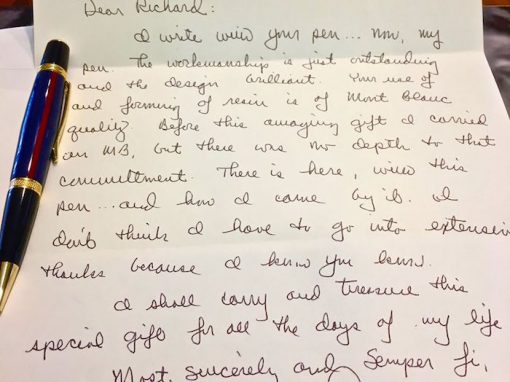 Dear Richard:
I write with your pen... now, my
pen. The workmanship is just outstanding
and the design brilliant. Your use of
and forming of resin is of Mont Blanc
quality. Before this amazing gift I carried
an MB, but there was no depth to that
committment. There is here, with this
pen...and how I came by it. I
don't think I have to go into extensive
thanks because I know you know.
I shall carry and treasure this
special gift for all the days of my life
Most sincerely and Semper Fi,